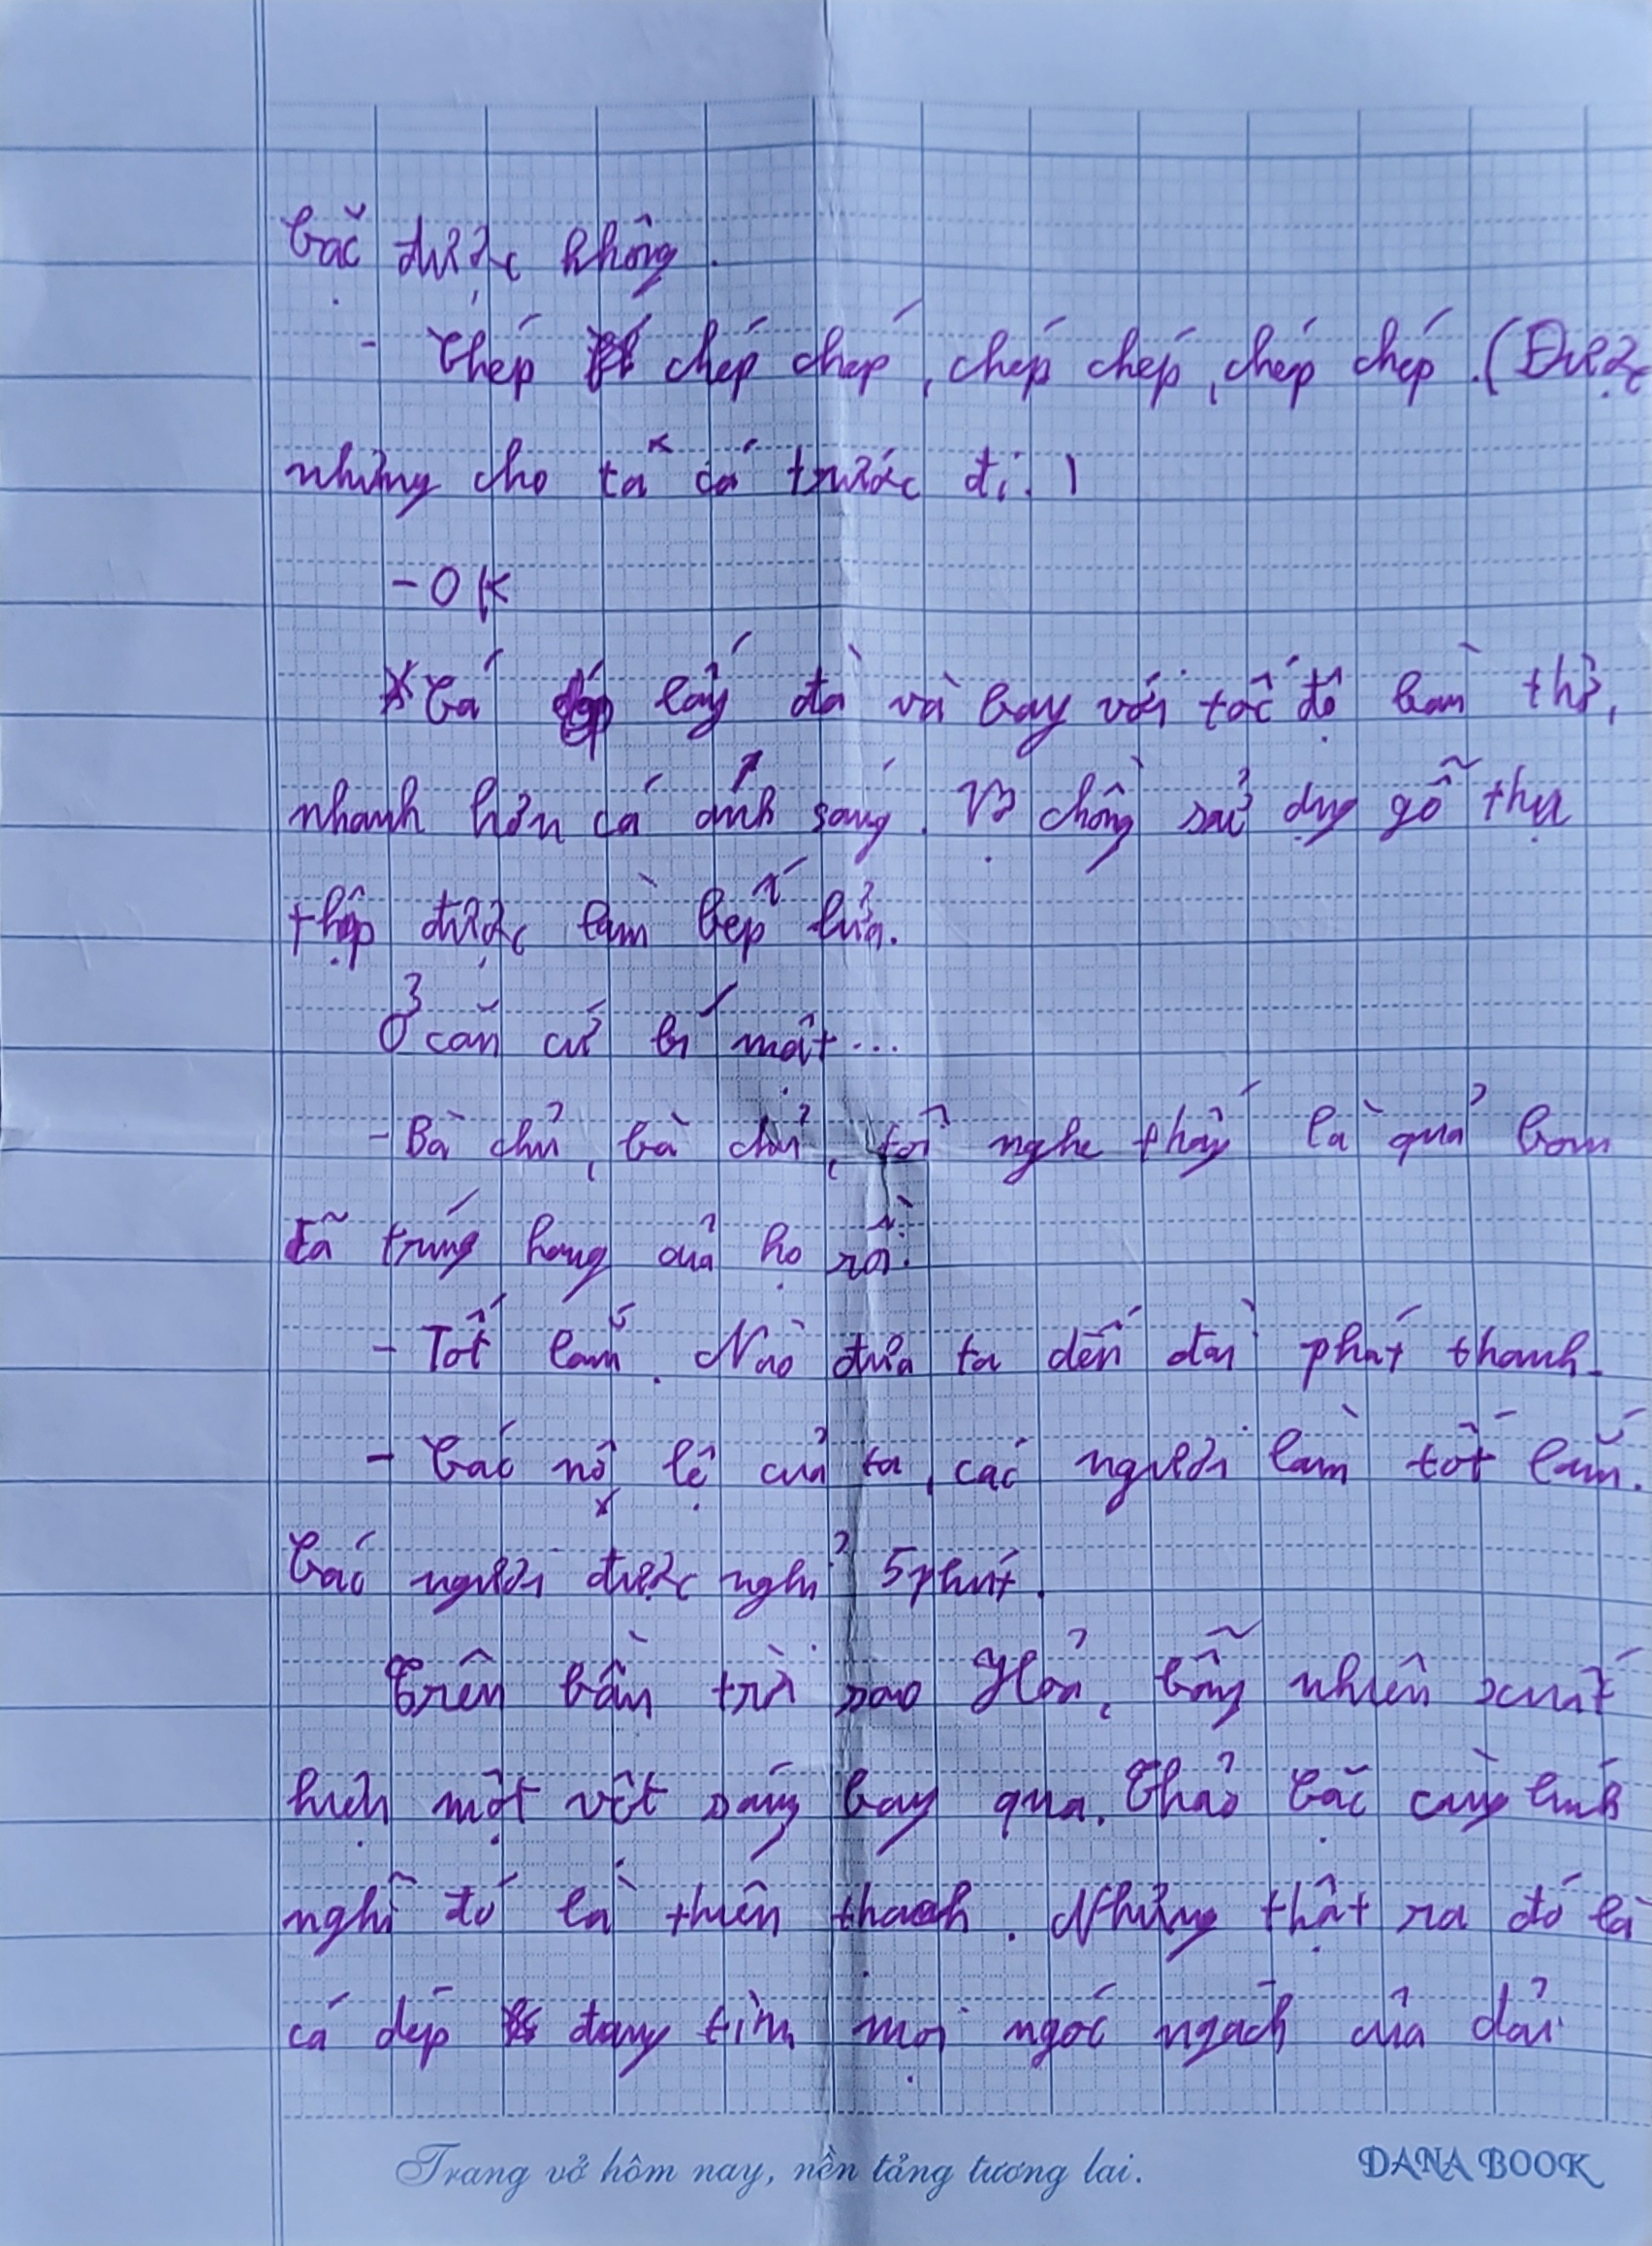 Cặc được không.
- Chép chép chép, chép chép, chép chép. (Được
nhưng cho ta cá trước đi.)
- OK
Cá lấy đà và bay với tốc độ bàn thờ,
nhanh hơn cả ánh sáng. Vợ chồng sử dụng gỗ thu
thập được làm bếp lửa.
Ở căn cứ bí mật...
- Bà chủ, bà chủ, tôi nghe thấy là quả bom
đã trúng hang của họ rồi.
- Tốt lắm. Nào đưa ta đến đài phát thanh.
- Các nô lệ của ta, các người làm tốt lắm.
Các người được nghỉ 5 phút.
Trên bầu trời sao Hỏa, bỗng nhiên xuất
hiện một vệt sáng bay qua. Thảo Cặc cùng lính
nghĩ đó là thiên thạch. Nhưng thật ra đó là
cá dép đang tìm mọi ngóc ngách của dải
Trang vở hôm nay, nền tảng tương lai.
DANA BOOK